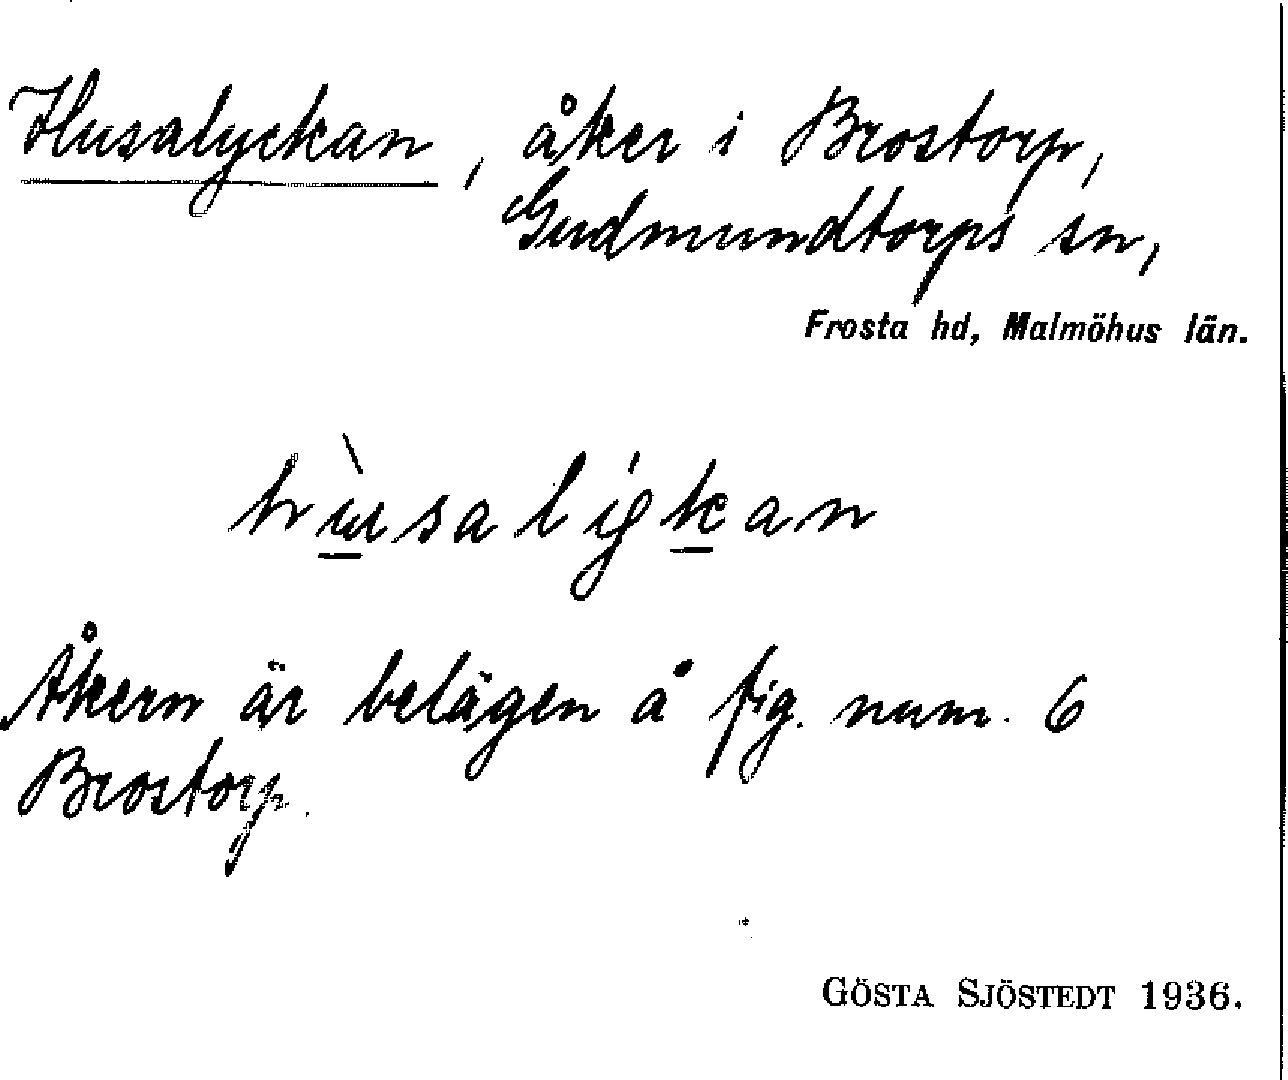 Husalyckan, åker i Brostorp,
Gudmundtorps sn,
Frosta hd, Malmöhus län.
Åkern är belägen å fig. num. 6
Brostorp.
GÖSTA SJÖSTEDT 1936.